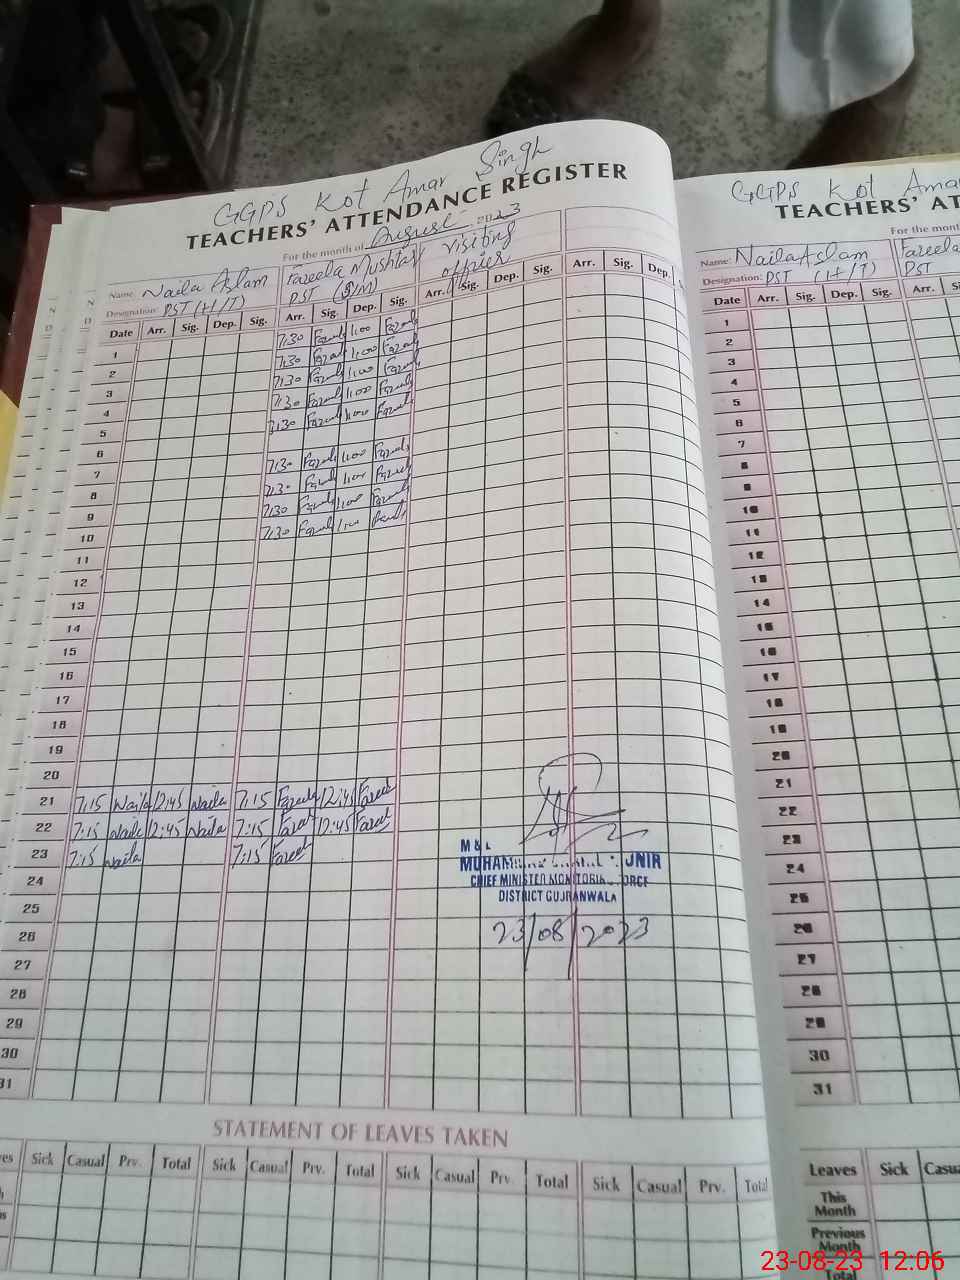 GGPS Kot Amar Singh
TEACHERS' ATTENDANCE REGISTER
For the month of August 2023
Name: Naila Aslam Fareela Mushtaq Visiting
Designation: PST (H/T) PST (S/M) officer
Date Arr. Sig. Dep. Sig. Arr. Sig. Dep. Sig. Arr. Sig. Dep. Sig. Arr. Sig. Dep.
1 7:30 1:00
2 7:30 1:00
3 7:30 1:00
4 7:30 1:00
5 7:30 1:00
6
7 7:30 1:00
8 7:30 1:00
9 7:30 1:00
10 7:30 1:00
11
12
13
14
15
16
17
18
19
20
21 7:15 Naila 12:45 Naila 7:15 12:45
22 7:15 Naila 12:45 Naila 7:15 12:45
23 7:15 Naila 7:15
24
25
26
27
28
29
30
31
M & E
CHIEF MINISTER MONITORING FORCE
DISTRICT GUJRANWALA
23/08/2023
STATEMENT OF LEAVES TAKEN
Sick Casual Prv. Total Sick Casual Prv. Total Sick Casual Prv. Total Sick Casual Prv. Total
GGPS Kot Amar
TEACHERS' AT
For the mo
Name: Naila Aslam Fareela
Designation: PST (H/T) PST
Date Arr. Sig. Dep. Sig. Arr.
1
2
3
4
5
6
7
8
9
10
11
12
13
14
15
16
17
18
19
20
21
22
23
24
25
26
27
28
29
30
31
Leaves Sick Casu
This Month
Previous Month
Total
23-08-23 12:06